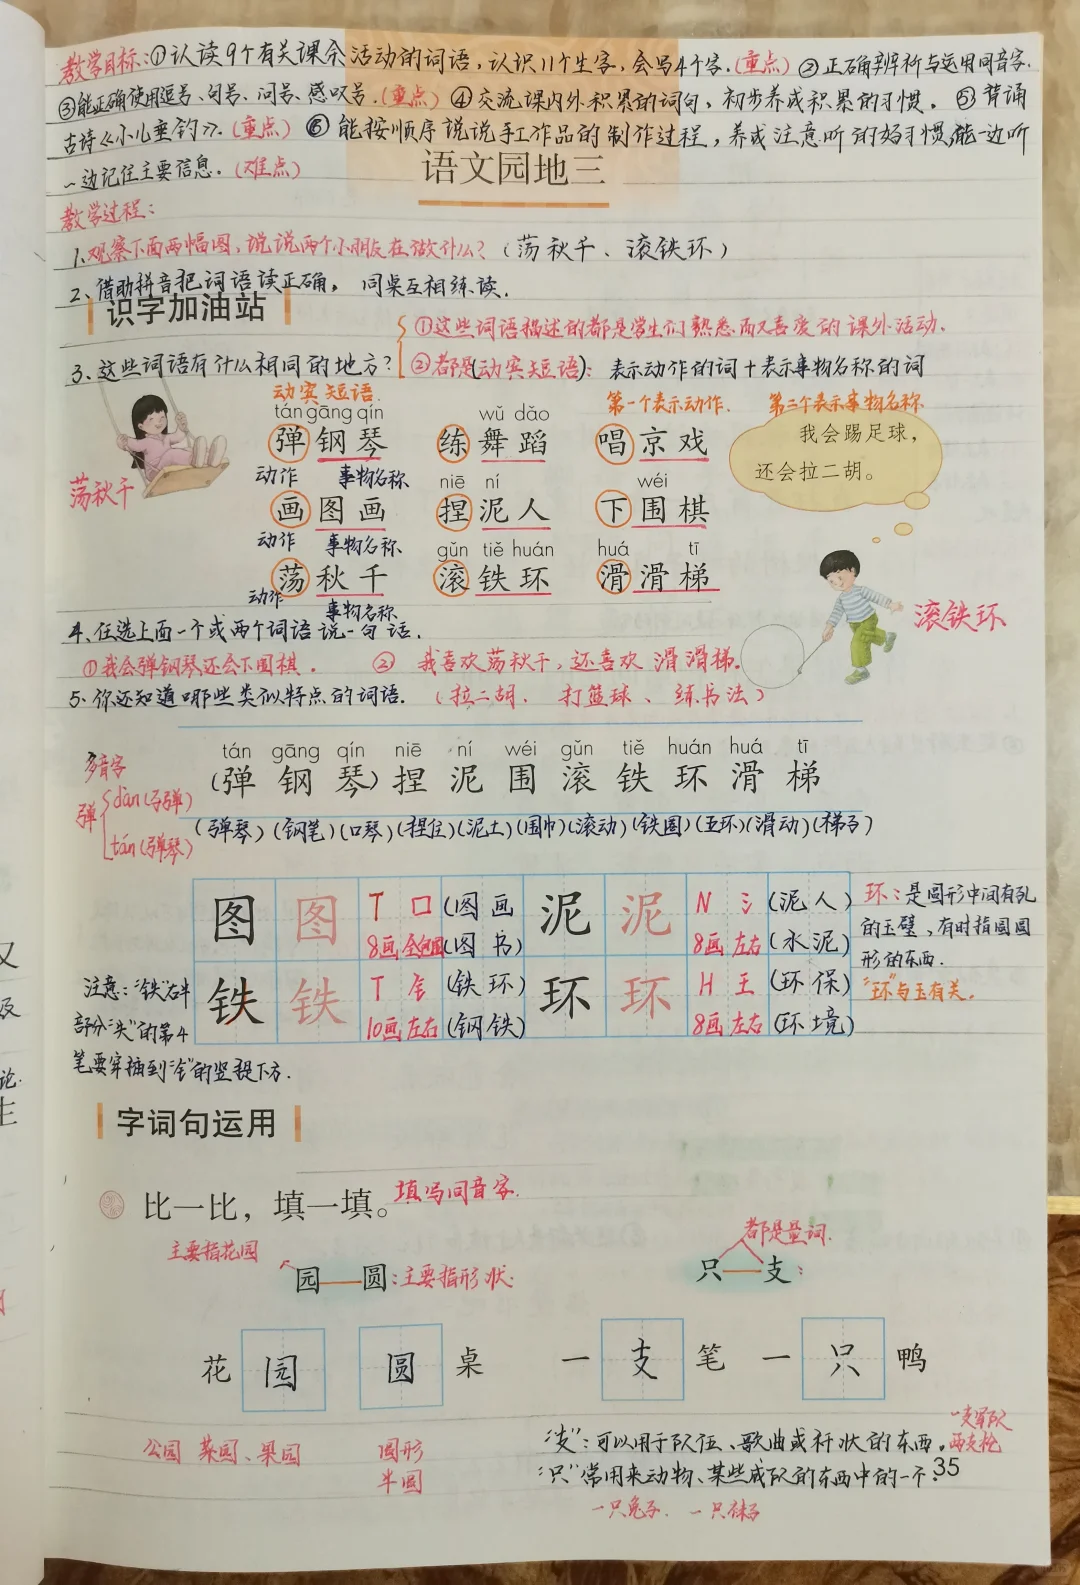 教学目标:①认读9个有关课余活动的词语,认识11个生字,会写4个字.(重点)②正确辨析与运用同音字.
③能正确使用逗号、句号、问号、感叹号.(重点)④交流课内外积累的词句,初步养成积累的习惯。⑤背诵
古诗《小儿垂钓》.(重点)⑥能按顺序说说手工作品的制作过程,养成注意听的好习惯,能一边听
一边记住主要信息.(难点)
语文园地三
教学过程:
1.观察下面两幅图,说说两个小朋友在做什么?(荡秋千、滚铁环)
2、借助拼音把词语读正确,同桌互相练读.
识字加油站
①这些词语描述的都是学生们熟悉而又喜爱的课外活动.
3、这些词语有什么相同的地方?
②都是(动宾短语):表示动作的词+表示事物名称的词
动宾短语.
第一个表示动作.
第二个表示事物名称
tán gāng qín wǔ dǎo
弹钢琴 练舞蹈 唱京戏
我会踢足球,
还会拉二胡。
荡秋千
动作 事物名称
niē ní wéi
画图画 捏泥人 下围棋
动作 事物名称
gǔn tiě huán huá tī
荡秋千 滚铁环 滑滑梯
动作 事物名称
滚铁环
4、任选上面一个或两个词语说一句话.
①我会弹钢琴还会下围棋. ②我喜欢荡秋千,还喜欢滑滑梯.
5、你还知道哪些类似特点的词语.(拉二胡. 打篮球、练书法)
tán gāng qín niē ní wéi gǔn tiě huán huá tī
(弹 钢 琴)捏 泥 围 滚 铁 环 滑 梯
多音字
弹 dàn(子弹)
tán(弹琴)
(弹琴)(钢笔)(口琴)(捏住)(泥土)(围巾)(滚动)(铁圈)(五环)(滑动)(梯子)
图 图 T 口 (图画) 泥 泥 N 氵 (泥人)
8画 全包围 (图书) 8画 左右 (水泥)
铁 铁 T 钅 (铁环) 环 环 H 王 (环保)
10画 左右 (钢铁) 8画 左右 (环境)
环:是圆形中间有孔
的玉璧,有时指圆圈
形的东西.
"环"与玉有关.
注意:"铁"右半
部分"失"的第4
笔要穿插到"钅"的竖提下方.
字词句运用
比一比,填一填。填写同音字.
主要指花园
园——圆:主要指形状.
都是量词.
只——支:
花园 圆桌 一支笔 一只鸭
公园 菜园、果园 圆形
半圆
"支":可以用于队伍、歌曲或杆状的东西.
一支军队
两支枪
"只"常用来动物、某些成队的东西中的一个.
一只兔子. 一只袜子
35